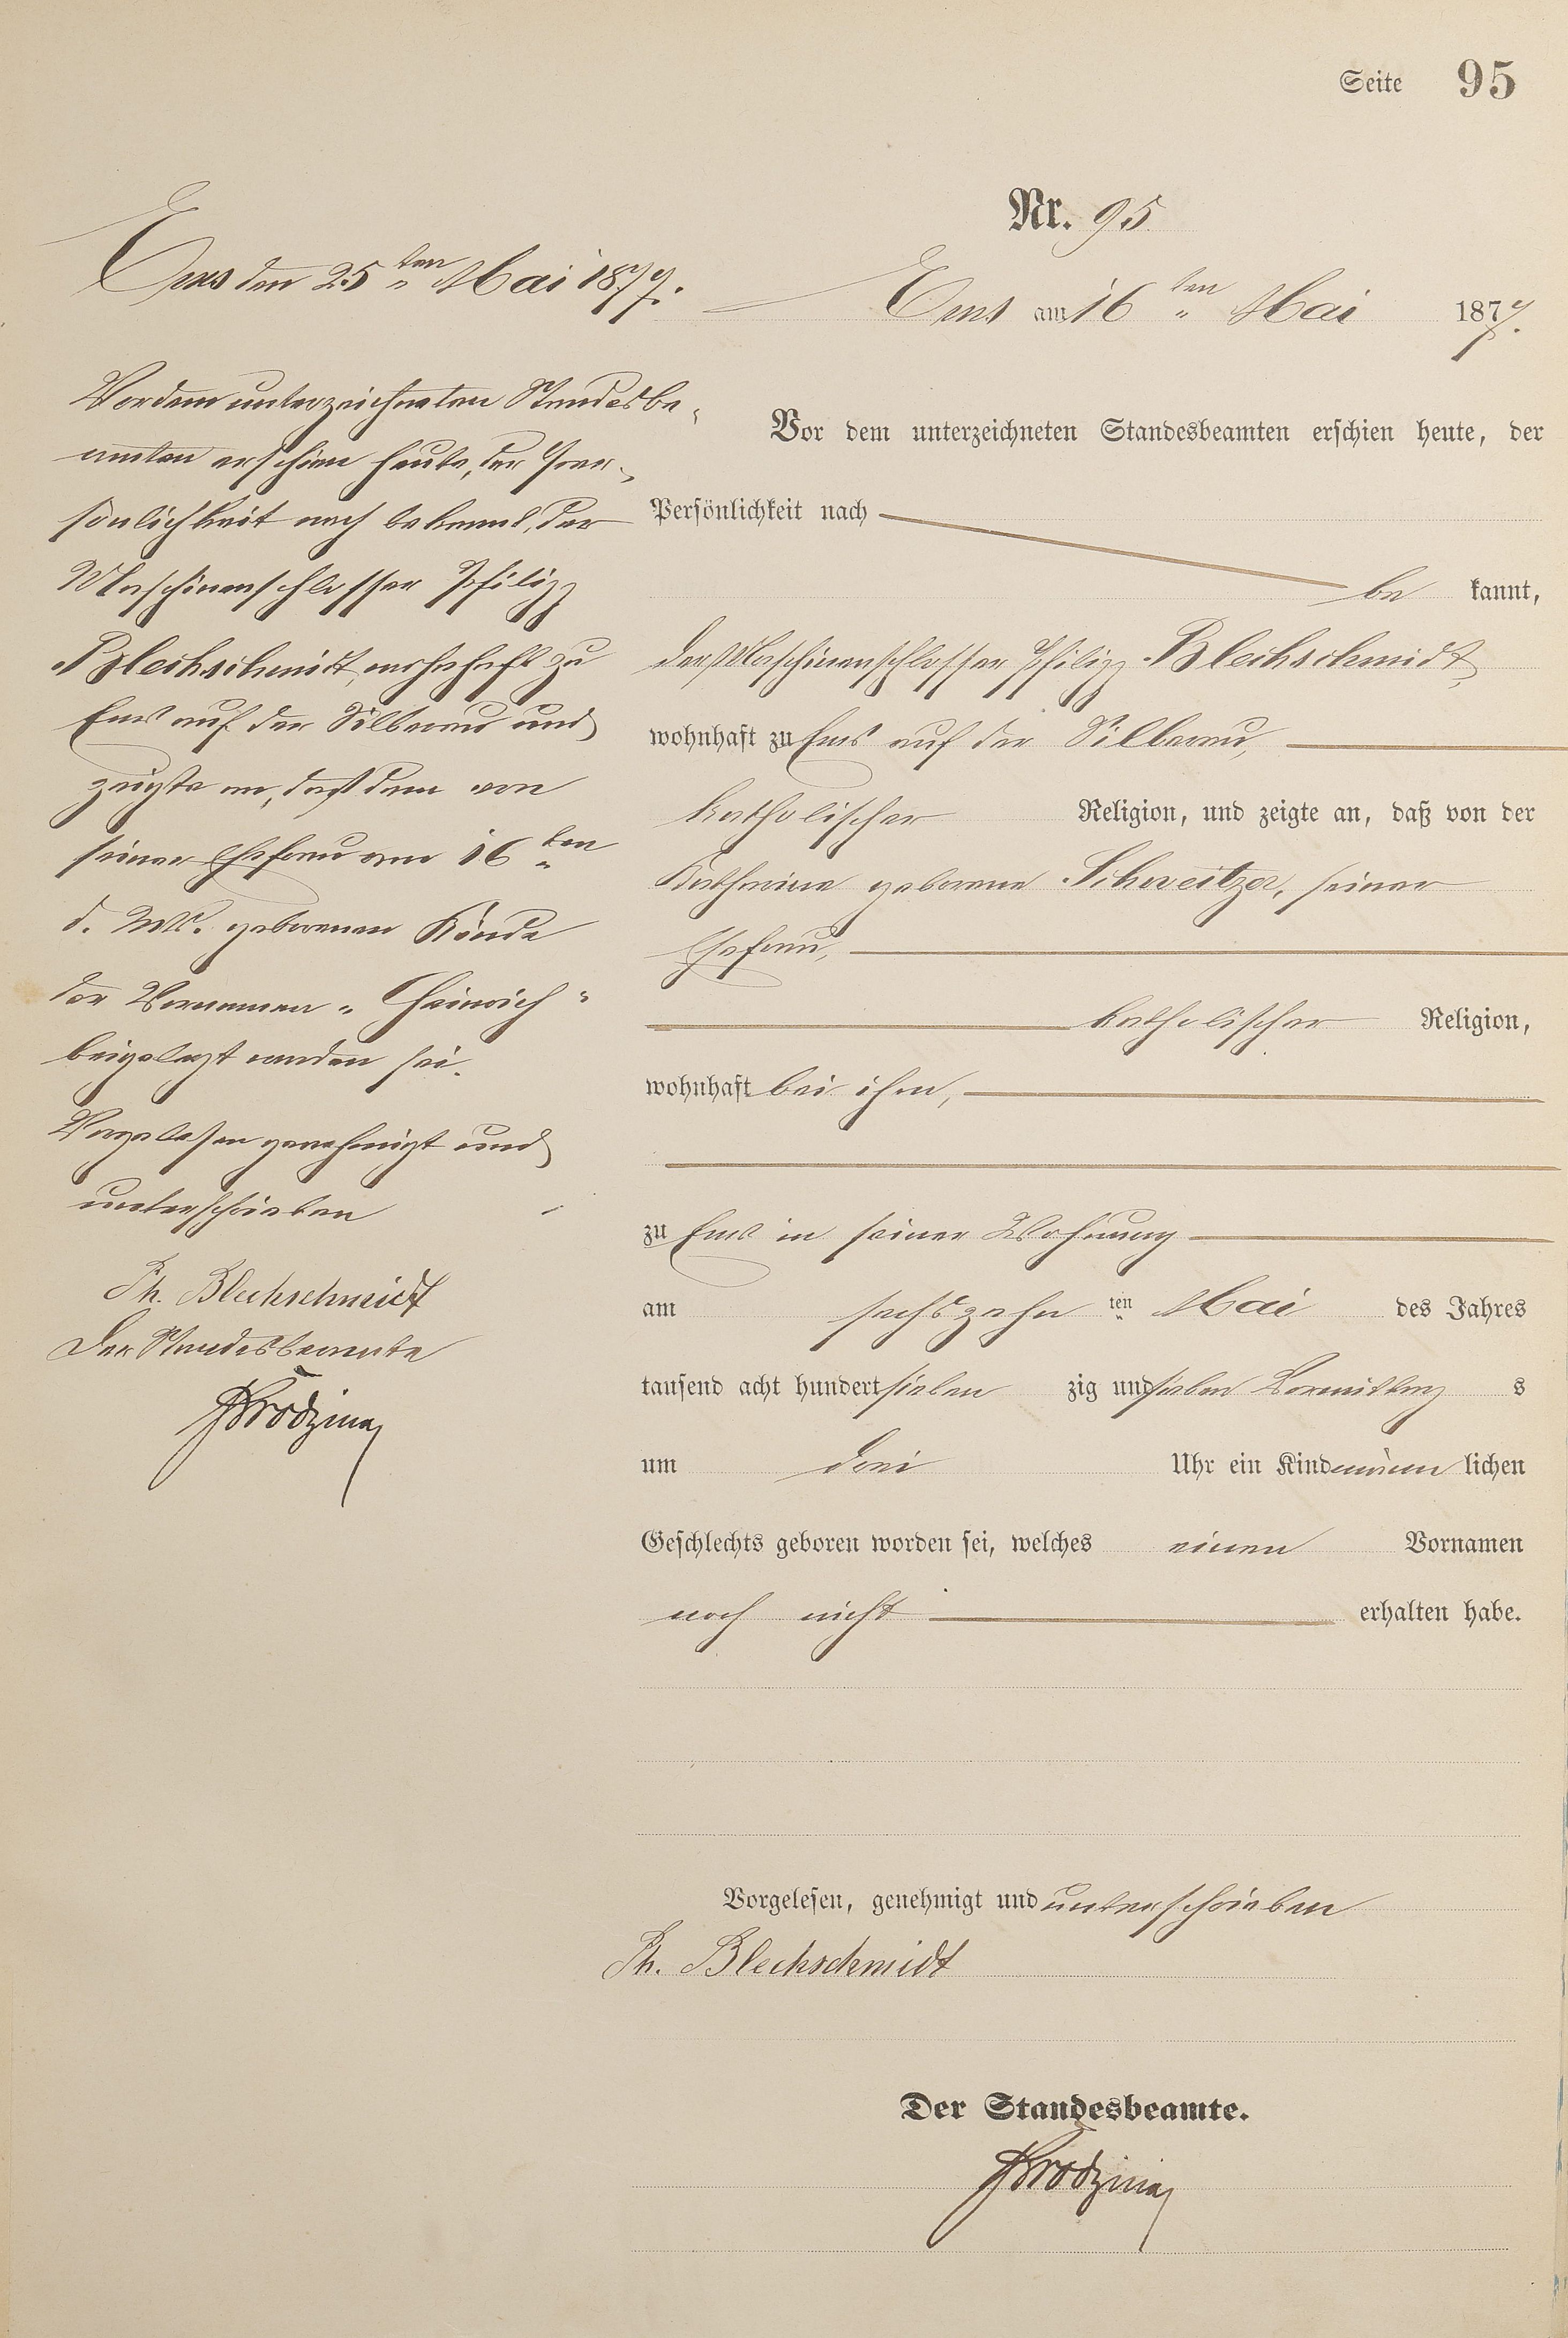 Seite 95
Nr. 95
Ems am 16ten Mai 1877.
Vor dem unterzeichneten Standesbeamten erschien heute, der
Persönlichkeit nach
be kannt,
der Maschinenschlosser Philipp Blechschmidt,
wohnhaft zu Ems auf der Silberau,
katholischer Religion, und zeigte an, daß von der
Katharina geborene Schweitzer, seiner
Ehefrau,
katholischer Religion,
wohnhaft bei ihm,
zu Ems in seiner Wohnung
am sechszehn ten Mai des Jahres
tausend acht hundert sieben zig und sieben Vormittag s
um drei Uhr ein Kind männ lichen
Geschlechts geboren worden sei, welches einen Vornamen
noch nicht erhalten habe.
Vorgelesen, genehmigt und unterschrieben
Ph. Blechschmidt
Der Standesbeamte.
Ems den 25ten Mai 1877.
Vor dem unterzeichneten Standesbe-
amten erschien heute, der Per-
sönlichkeit nach bekannt, der
Maschinenschlosser Philipp
Blechschmidt, wohnhaft zu
Ems auf der Silberau und
zeigte an, daß dem von
seiner Ehefrau am 16ten
d. Mts. geborenen Kinde
der Vornamen „Heinrich"
beigelegt worden sei.
Vorgelesen genehmigt und
unterschrieben
Ph. Blechschmidt
Der Standesbeamte